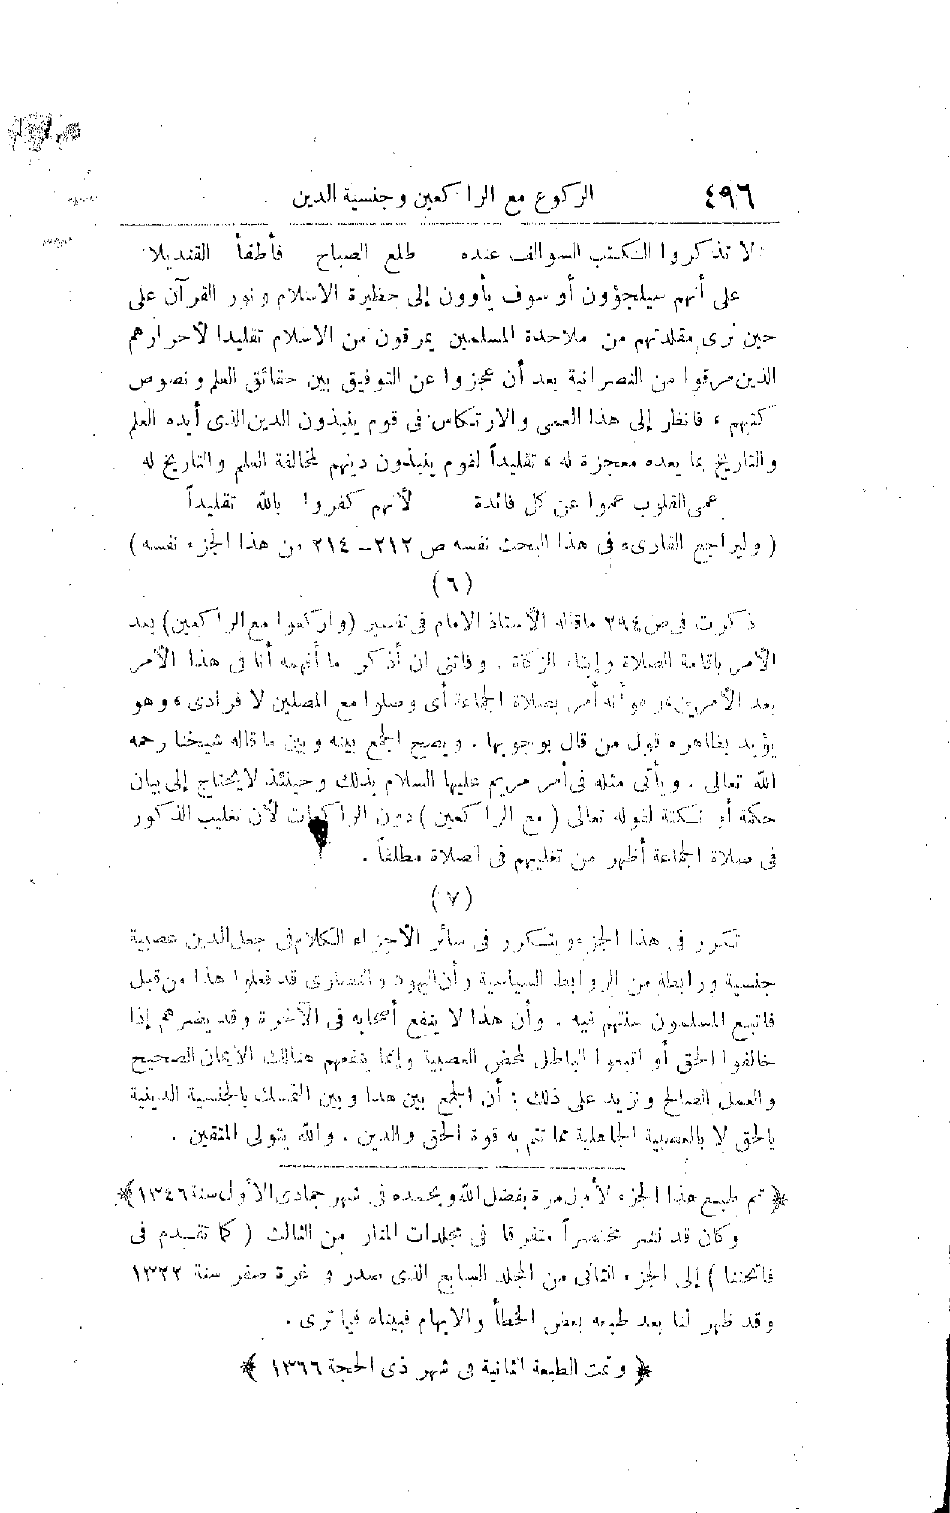 ٤٩٦ الركوع مع الراكعين وجنسية الدين
لا تذكروا الكتب السوالف عنده طلع الصباح فأطفأ القنديلا
على أنهم سيلجؤون أو سوف يأوون إلى حظيرة الاسلام ونور القرآن على
حين نرى مقلدتهم من ملاحدة المسلمين يمرقون من الاسلام تقليدا لأحرارهم
الذين مرقوا من النصرانية بعد أن عجزوا عن التوفيق بين حقائق العلم ونصوص
كتبهم ، فانظر إلى هذا العمى والارتكاس فى قوم ينبذون الدين الذى أيده العلم
والتاريخ بما يعده معجزة له ، تقليداً لقوم ينبذون دينهم لمخالفة العلم والتاريخ له
عمى القلوب عموا عن كل فائدة لأنهم كفروا بالله تقليداً
( وليراجع القارىء فى هذا البحث نفسه ص ٢١٢ – ٢١٤ من هذا الجزء نفسه )
( ٦ )
ذكرت فى ص ٢٩٤ ماقاله الأستاذ الامام فى تفسير ( واركعوا مع الراكعين ) بعد
الأمر باقامة الصلاة وإيتاء الزكاة . وفاتنى ان أذكر ما أفهمه أنا فى هذا الأمر
بعد الأمرين، وهو أنه أمر بصلاة الجماعة أى وصلوا مع المصلين لا فرادى ، وهو
يؤيد بظاهره قول من قال بوجوبها . ويصح الجمع بينه وبين ما قاله شيخنا رحمه
الله تعالى . ويأتى مثله فى أمر مريم عليها السلام بذلك وحينئذ لا يحتاج إلى بيان
حكمة أو نكتة لقوله تعالى ( مع الراكعين ) دون الراكعات لأن تغليب الذكور
فى صلاة الجماعة أظهر من تغليبهم فى الصلاة مطلقاً .
( ٧ )
تكرر فى هذا الجزء ويتكرر فى سائر الأجزاء الكلام فى جعل الدين عصبية
جنسية ورابطة من الروابط السياسية وأن اليهود والنصارى قد فعلوا هذا من قبل
فاتبع المسلمون سنتهم فيه . وأن هذا لا ينفع أصحابه فى الآخرة وقد يضرهم إذا
خالفوا الحق أو اتبعوا الباطل لمحض العصبية وإنما ينفعهم هنالك الأيمان الصحيح
والعمل الصالح ونزيد على ذلك : أن الجمع بين هذا وبين التمسك بالجنسية الدينية
بالحق لا بالعصبية الجاهلية مما تتم به قوة الحق والدين . والله يتولى المتقين .
﴿ تم طبع هذا الجزء لأول مرة بفضل الله وبحمده فى شهر جمادى الأول سنة ١٣٤٦ ﴾
وكان قد نشر مختصراً متفرقا فى مجلدات المنار من الثالث ( كما تقدم فى
فاتحتنا ) إلى الجزء الثانى من المجلد السابع الذى صدر و غرة صفر سنة ١٣٢٢
وقد ظهر لنا بعد طبعه بعض الخطأ والايهام فبيناه فيما ترى .
﴿ وتمت الطبعة الثانية فى شهر ذى الحجة ١٣٦٦ ﴾